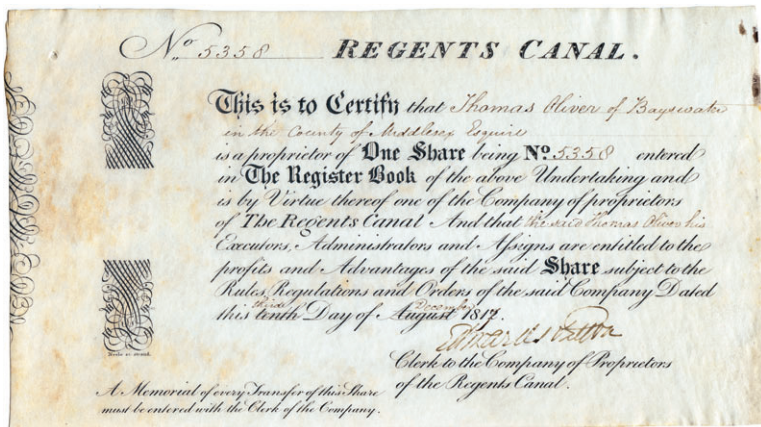 No. 5358 REGENTS CANAL.
This is to Certify that Thomas Oliver of Bayswater
in the County of Middlesex Esquire
is a proprietor of One Share being No. 5358 entered
in The Register Book of the above Undertaking and
is by Virtue thereof one of the Company of proprietors
of The Regents Canal And that the said Thomas Oliver his
Executors, Administrators and Assigns are entitled to the
profits and Advantages of the said Share subject to the
Rules, Regulations and Orders of the said Company Dated
third December
this tenth Day of August 1817.
Clerk to the Company of Proprietors
of the Regents Canal.
A Memorial of every Transfer of this Share
must be entered with the Clerk of the Company.